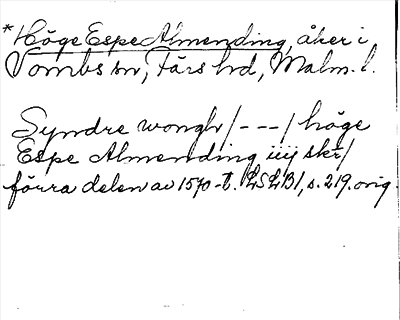 *Höge Espe Almending, åker i
Vombs sn, Färs hd, Malm. l.
Syndre wongh/---/ höge
Espe Almending iiij skr/
förra delen av 1570-t. LSLB1, s. 219. orig.